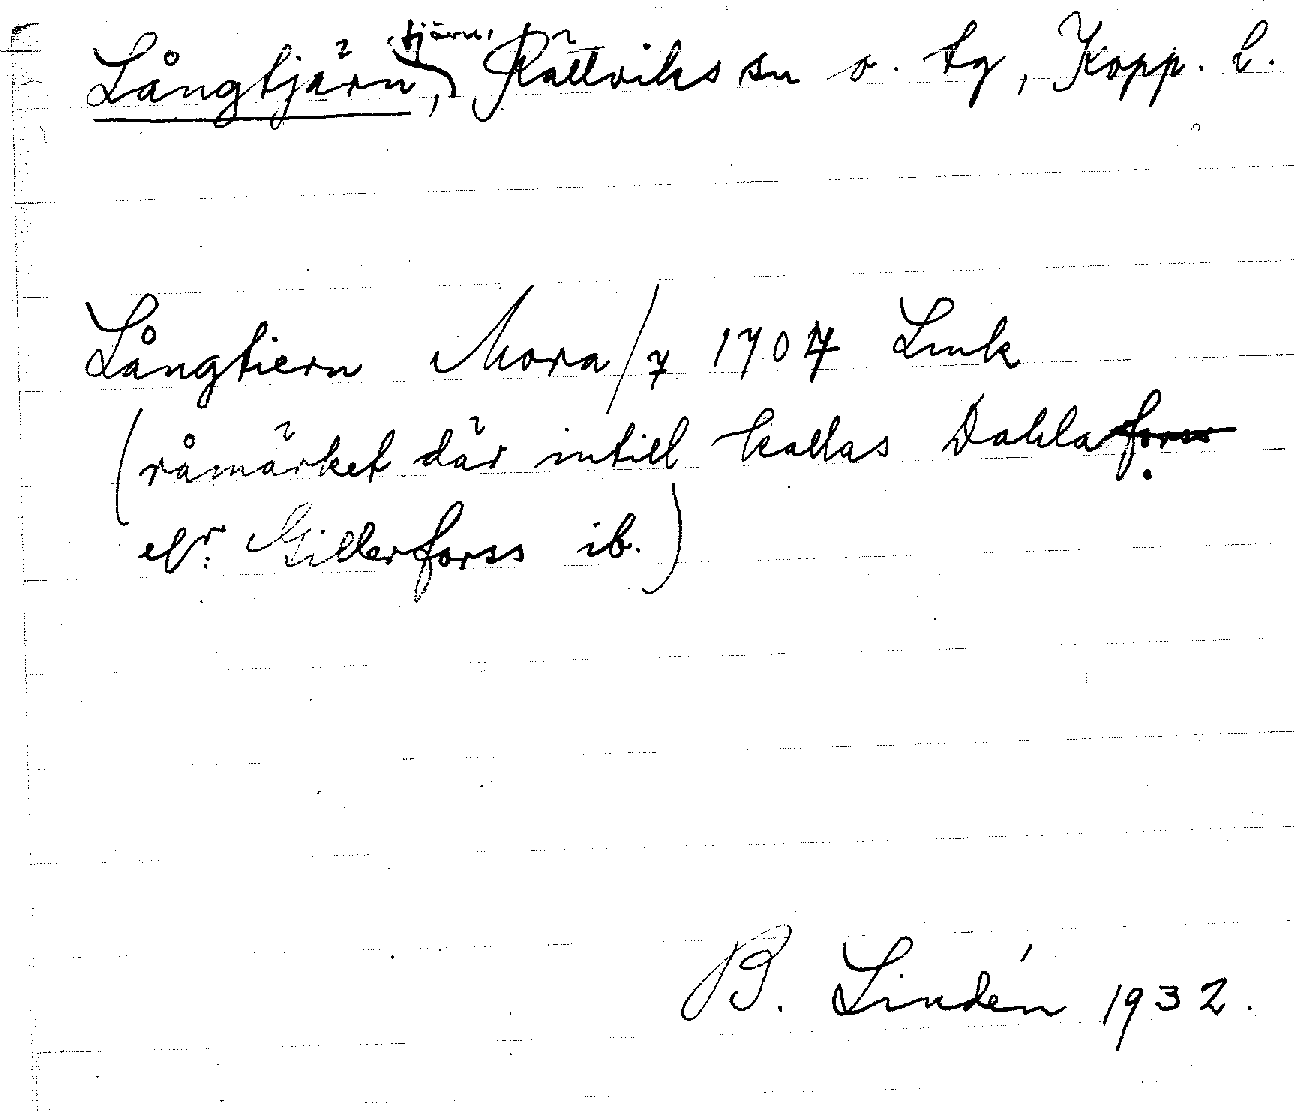 Långtjärn, tjärn, Rättviks sn o. tg, Kopp. l.
Långtiern Mora/7 1704 Lmk
(råmärket där intill kallas Dahlaforss
elr. Gillerforss ib.)
B. Lindén 1932.